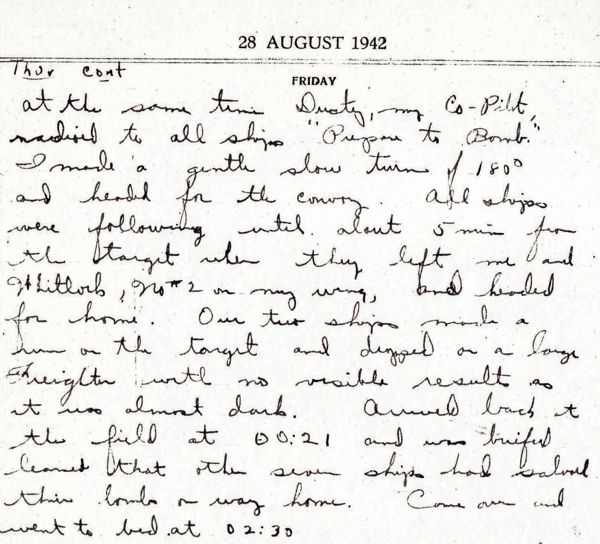 28 AUGUST 1942
Thur cont
FRIDAY
at the same time Dusty, my Co-Pilot,
radioed to all ships "Prepare to Bomb."
I made a gentle slow turn of 180°
and headed for the convoy. All ships
were following until about 5 min from
the target when they left me and
Whitlock, No #2 on my wing, and headed
for home. Our two ships made a
run on the target and dropped on a large
Freighter with no visible results as
it was almost dark. Arrived back at
the field at 00:21 and was briefed
learned that other seven ships had salvoed
their bombs on way home. Come over and
went to bed at 02:30